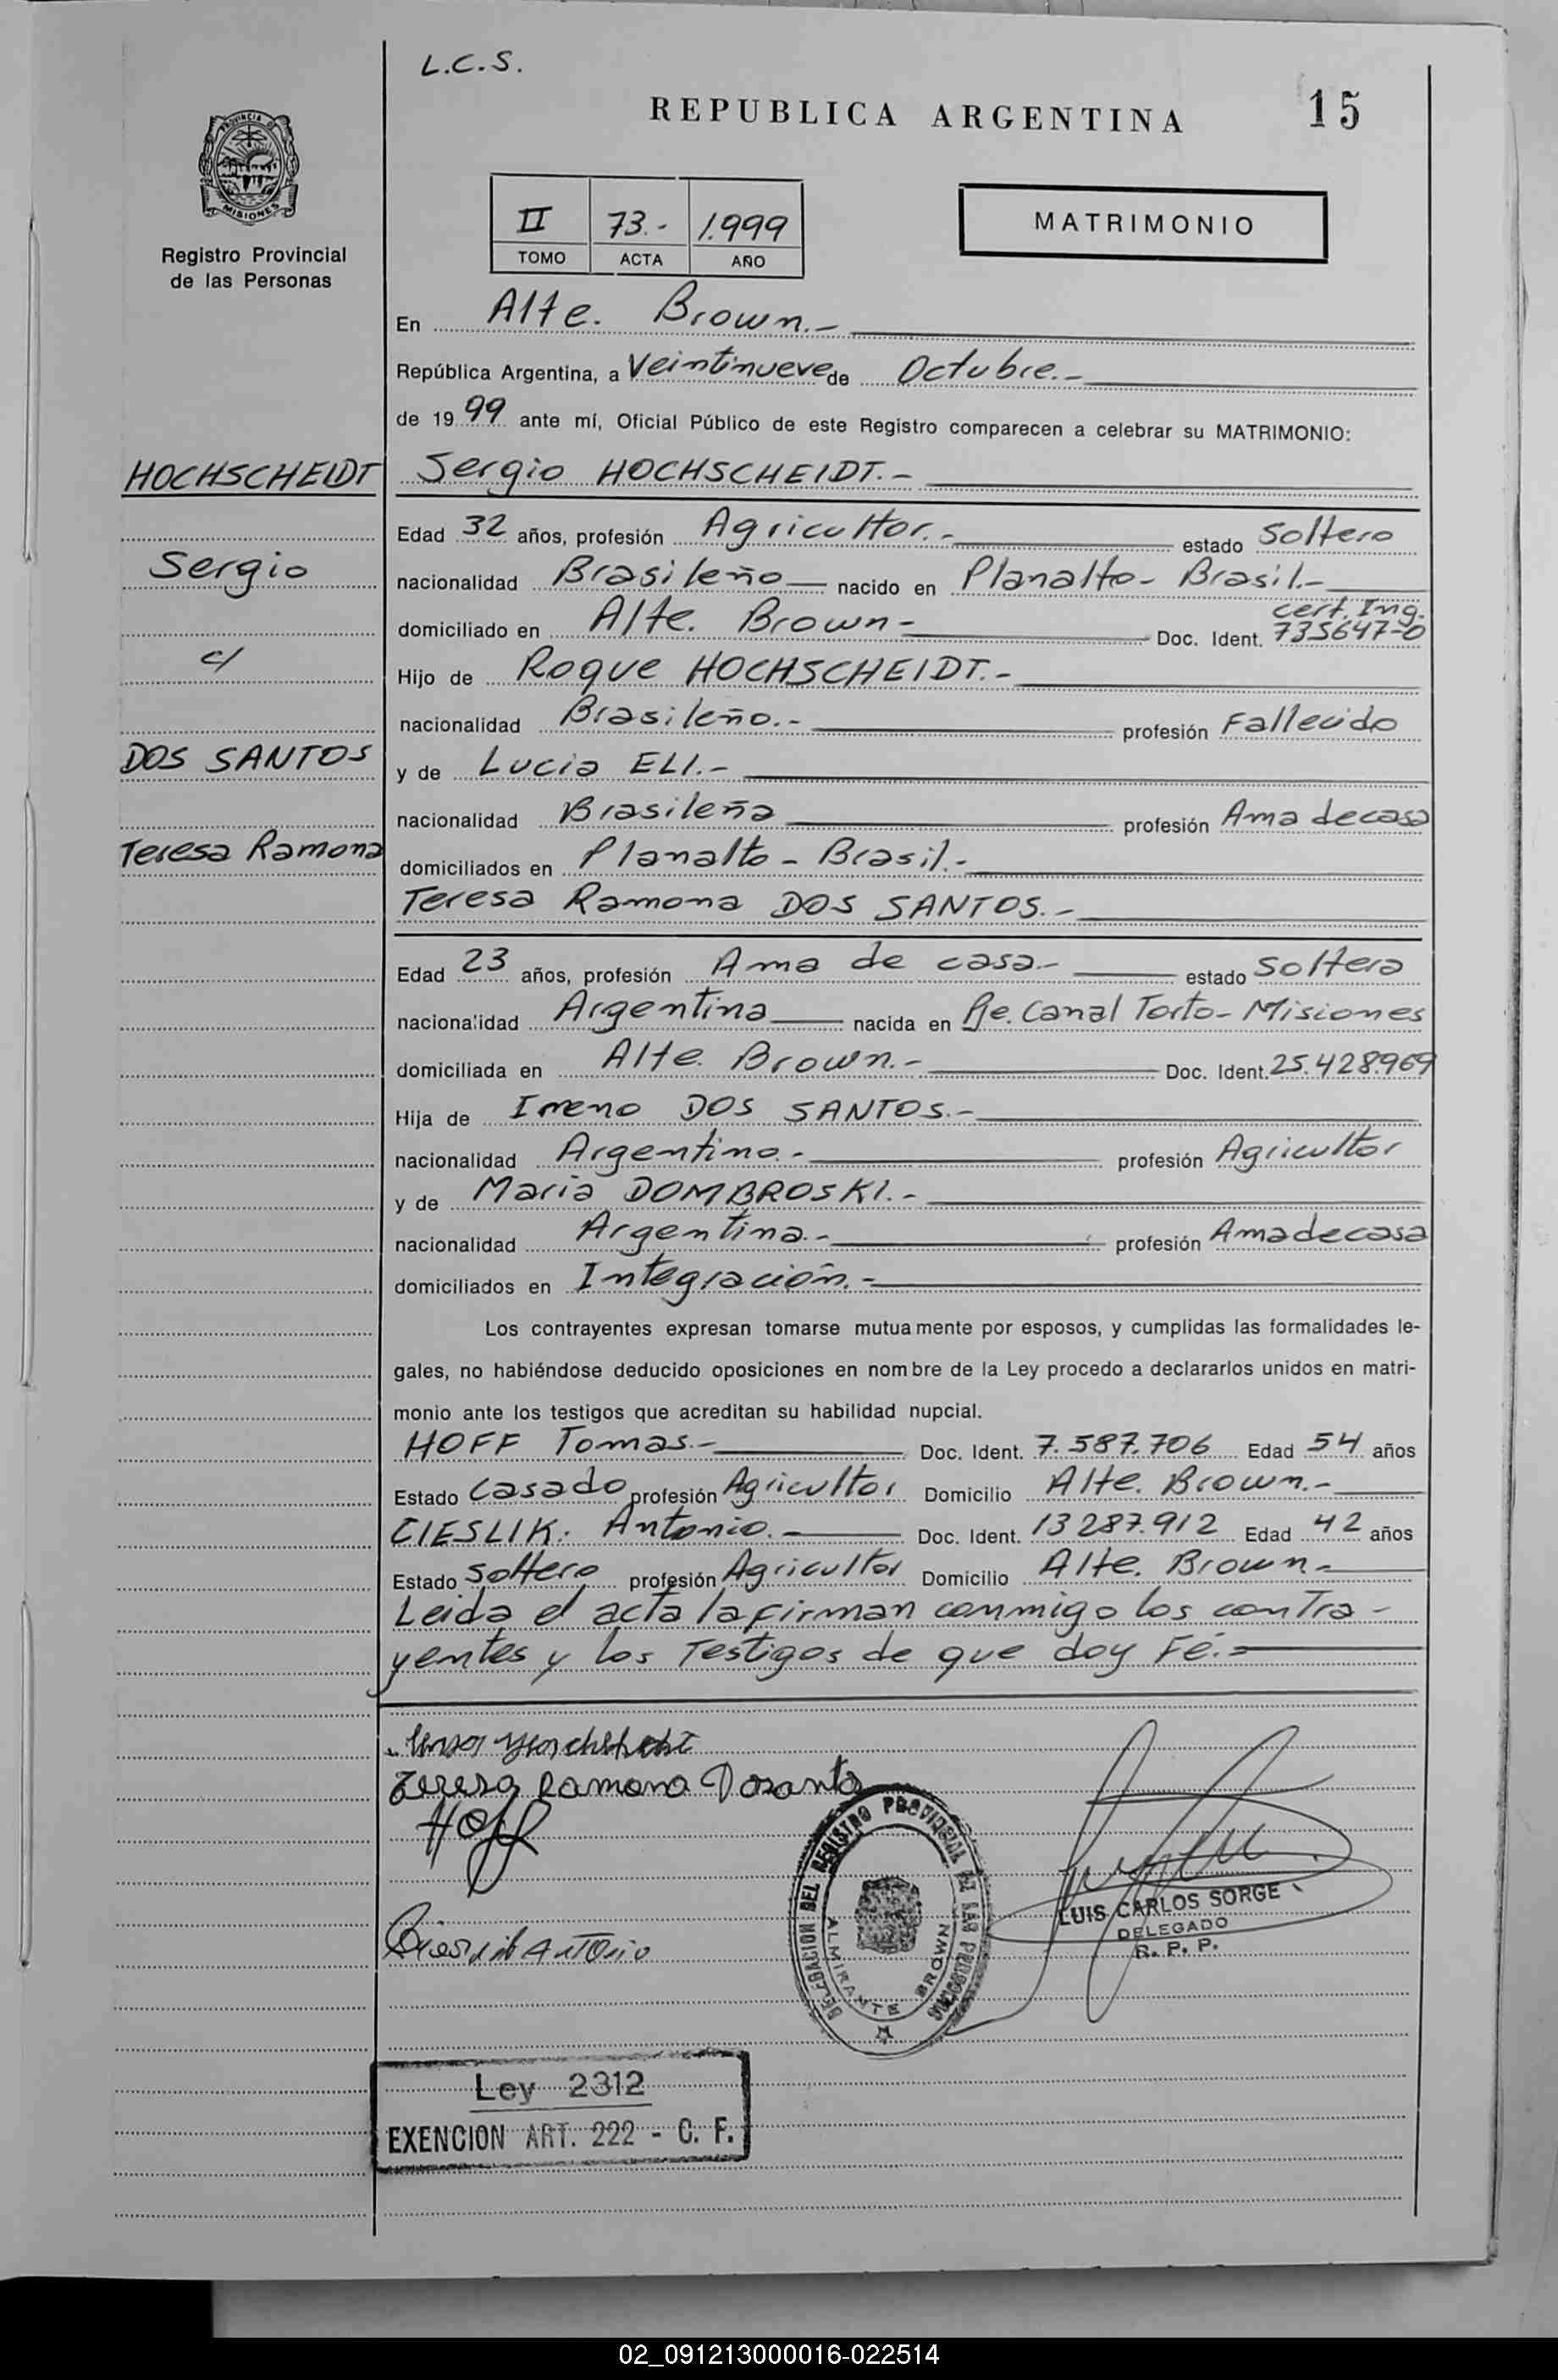 L.C.S.
REPUBLICA ARGENTINA
15
PROVINCIA DE
MISIONES
Registro Provincial
de las Personas
II 73.- 1.999
TOMO ACTA AÑO
MATRIMONIO
En Alte. Brown.-
República Argentina, a Veintinueve de Octubre.-
de 1999 ante mí, Oficial Público de este Registro comparecen a celebrar su MATRIMONIO:
HOCHSCHEIDT Sergio HOCHSCHEIDT.-
Edad 32 años, profesión Agricultor.- estado Soltero
Sergio
nacionalidad Brasileño nacido en Planalto- Brasil.-
cert. Ing.
domiciliado en Alte. Brown- Doc. Ident. 735647-0
c/
Hijo de Roque HOCHSCHEIDT.-
nacionalidad Brasileño.- profesión Fallecido
DOS SANTOS
y de Lucia ELI.-
nacionalidad Brasileña profesión Ama de casa
Teresa Ramona
domiciliados en Planalto - Brasil.-
Teresa Ramona DOS SANTOS.-
Edad 23 años, profesión Ama de casa.- estado Soltera
nacionalidad Argentina nacida en Pje. Canal Torto- Misiones
domiciliada en Alte. Brown.- Doc. Ident. 25.428.969
Hija de Ireno DOS SANTOS.-
nacionalidad Argentino.- profesión Agricultor
y de Maria DOMBROSKI.-
nacionalidad Argentina.- profesión Ama de casa
domiciliados en Integración.-
Los contrayentes expresan tomarse mutuamente por esposos, y cumplidas las formalidades le-
gales, no habiéndose deducido oposiciones en nombre de la Ley procedo a declararlos unidos en matri-
monio ante los testigos que acreditan su habilidad nupcial.
HOFF Tomas.- Doc. Ident. 7.587.706 Edad 54 años
Estado Casado profesión Agricultor Domicilio Alte. Brown.-
CIESLIK. Antonio.- Doc. Ident. 13287.912 Edad 42 años
Estado Soltero profesión Agricultor Domicilio Alte. Brown.-
Leida el acta la firman conmigo los contra-
yentes y los Testigos de que doy Fé.=
Teresa Ramona Dosantos
Hoff
Antonio
DELEGACION DEL REGISTRO PROVINCIAL DE LAS PERSONAS
ALMIRANTE BROWN
LUIS CARLOS SORGE
DELEGADO
R. P. P.
Ley 2312
EXENCION ART. 222 - C. F.
02_091213000016-022514